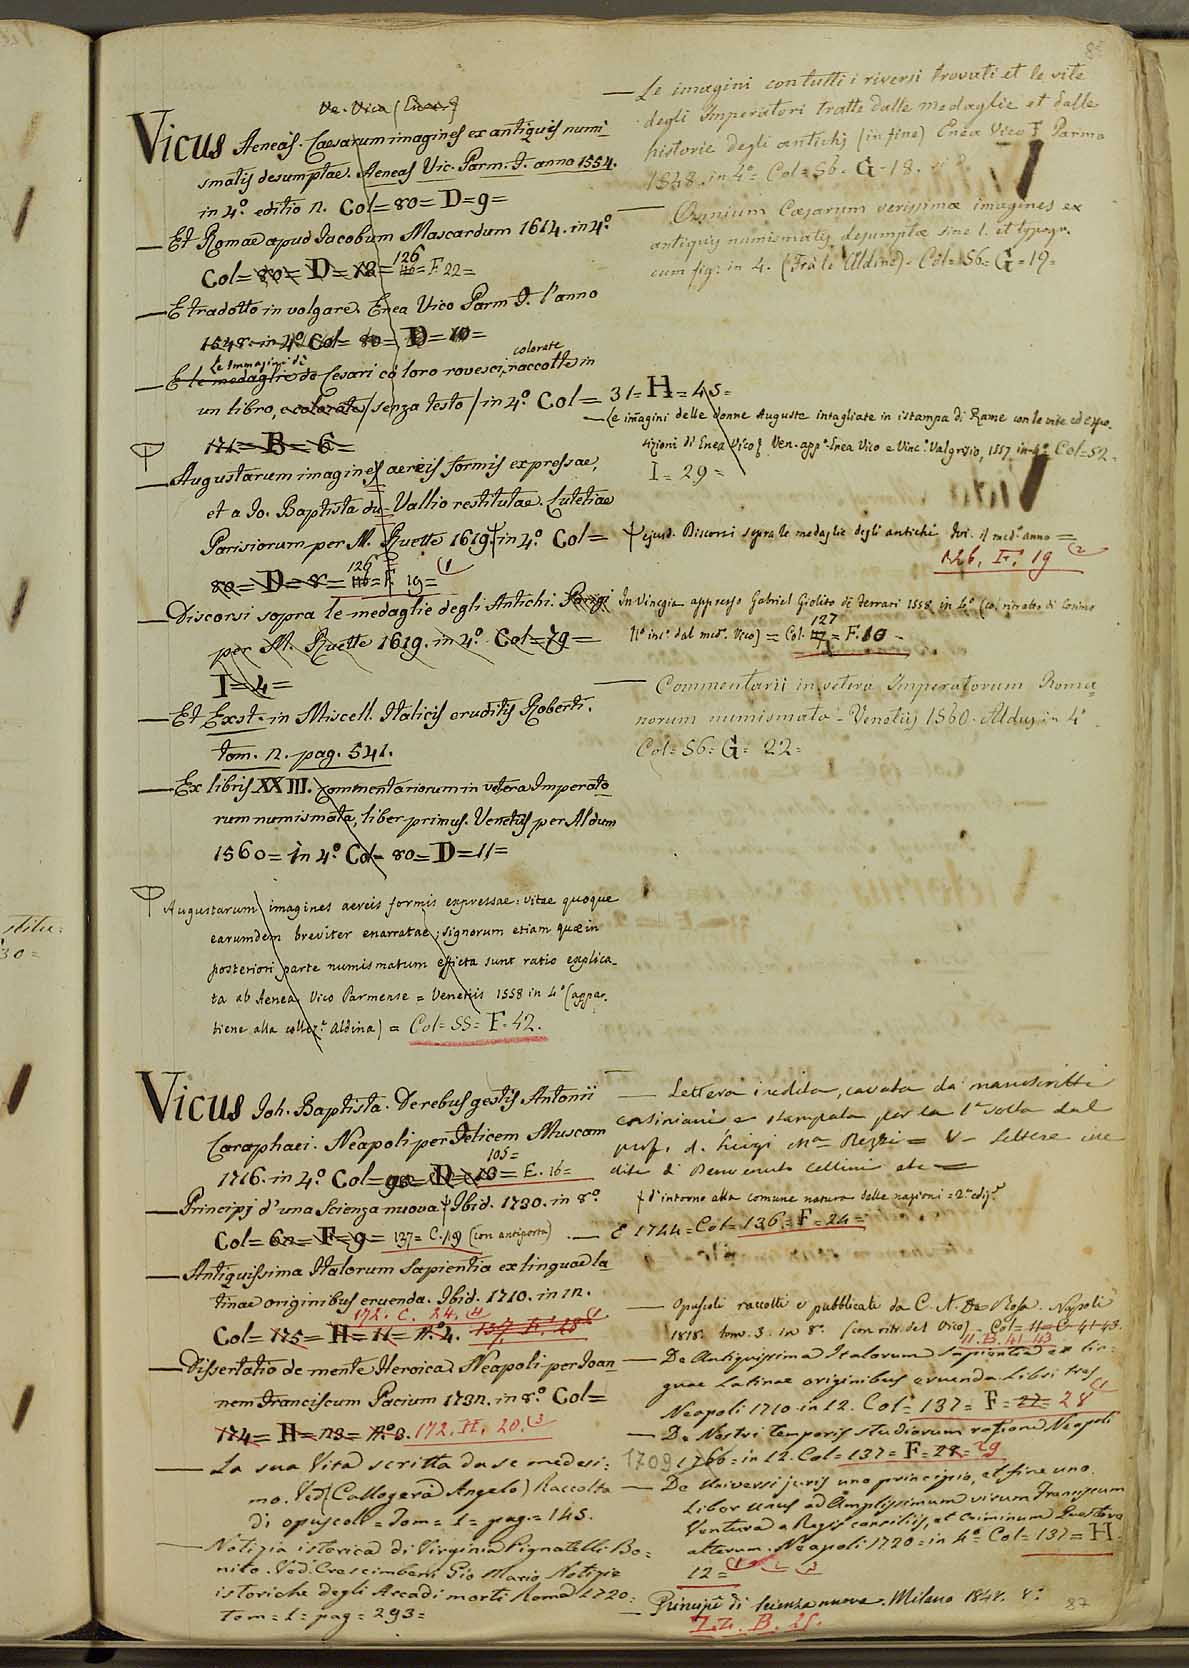 Ve. Vico (Enea)
Vicus Aeneas. Caesarum imagines ex antiquis numi-
smatis desumptae. Aeneas Vic. Parm. F. anno 1554.
in 4º. editio 2. Col= 80= D= 9=
— Et Romae apud Jacobum Mascardum 1614. in 4º.
Col= 80= D= 12= 126 = F. 22=
— E tradotto in volgare. Enea Vico Parm. F. l'anno
1548. in 4º. Col= 80= D= 10=
Le Immagini dè colorate
— E le medaglie de Cesari co' loro rovesci, raccolte in
un libro, e colorate / senza testo / in 4º. Col= 31= H= 45=
171= B= 6=
— Augustarum imagines aereis formis expressae,
et a Jo. Baptista du Vallio restitutae. Lutetiae
Parisiorum per M. Ruette 1619. in 4º. Col=
80= D= 8= 126 = F. 19= (1
— Discorsi sopra le medaglie degli Antichi. Parigi
per M. Ruette 1619. in 4º. Col= 79=
I= 4=
— Et Exst. in Miscell. Italicis eruditis Roberti.
tom. 2. pag. 541.
— Ex libris XXIII. commentariorum in vetera Imperato-
rum numismata, liber primus. Venetiis per Aldum
1560= in 4º. Col= 80= D= 11=
Augustarum imagines aereis formis expressae: vitae quoque
earumdem breviter enarratae; signorum etiam quae in
posteriori parte numismatum efficta sunt ratio explica-
ta ab Aenea Vico Parmense = Venetiis 1558 in 4º (appar-
tiene alla collez.e Aldina) = Col= 55= F. 42.
Vicus Joh. Baptista. De rebus gestis Antonii
Caraphaei. Neapoli per Felicem Muscam
1716. in 4º. Col= 90= D= 10= 105= E. 16=
— Principj d'una Scienza nuova Ibid. 1730. in 8º.
Col= 62= F= 9= 137= C. 19 (con antiporta)
— Antiquissima Italorum Sapientia ex linguae la-
tinae originibus eruenda. Ibid. 1710. in 12.
172. C. 24. (4
Col= 175= H= 11= Nº. 4. 137. F. 28
— Dissertatio de mente Heroica. Neapoli per Joan-
nem Franciscum Pacium 1732. in 8º. Col=
174= H= 23= Nº. 3. 172. H. 20. (3
— La sua Vita scritta da se medesi=
mo. Ved. (Callogerà Angelo) Raccolta
di opuscoli = Tom= 1= pag= 145.
— Notizia istorica di Virginia Pignatelli Bo=
nito. Ved. Crescimbeni Gio Mario Notizie
istoriche degli Arcadi morti Roma 1720=
Tom= 1= pag= 293=
— Le imagini con tutti i riversi trovati et le vite
degli Imperatori tratte dalle medaglie et dalle
historie degli antichi (in fine) Enea Vico F. Parma
1548. in 4º= Col= 56. G= 18.
— Omnium Caesarum verissimae imagines ex
antiquis numismatis desumptae sine l. et typogr.
cum fig: in 4. (Fra le Aldine)= Col= 56= G= 19=
— Le imagini delle donne Auguste intagliate in istampa di Rame con le vite ed espo-
sizioni di Enea Vico. Ven. app.º Enea Vico e Vinc. Valgrisio, 1557 in 4º Col= 52.
I= 29=
ejusd. Discorsi sopra le medaglie degli antichi ivi. il med.º anno =
126. F. 19 (2
In Vinegia appresso Gabriel Giolito de Ferrari 1558 in 4º (col ritratto di Cosimo
Iº inc.º dal med.º Vico) = Col. 127 = F. 10 -
— Commentarii in vetera Imperatorum Roma-
norum numismata - Venetiis 1560. Aldus in 4º.
Col= 56= G= 22=
— Lettera inedita, cavata da manoscritti
corsiniani e stampata per la 1ª volta dal
prof. d. Luigi Mª Rezzi = V. Lettere ine
dite di Benvenuto Cellini etc=
d'intorno alla comune natura delle nazioni = 2ª ediz.e
— E 1744= Col= 136= F= 24=
— Opuscoli raccolti e pubblicati da C. A. De Rosa. Napoli
1818. tom. 3. in 8º. (con rit. del Vico)= Col= 11= C= 41-43.
11. B. 41 43
— De Antiquissima Italorum sapientia ex lin-
guae Latinae originibus eruenda Libri tres
Neapoli 1710 in 12. Col= 137= F= 27= 28 (1
— De Nostri temporis studiorum ratione Neapoli
1709 1766= in 12. Col= 137= F= 28= 29
— De Universi juris uno principio, et fine uno.
Liber unus ad Amplissimum virum Franciscum
Ventura a Regis consiliis, et Criminum Quaestore
alterum. Neapoli 1720= in 4º= Col= 137= H=
12= (1 2 3
— Principi di Scienza nuova. Milano 1848. 8º.
ZZ. B. 25.
87